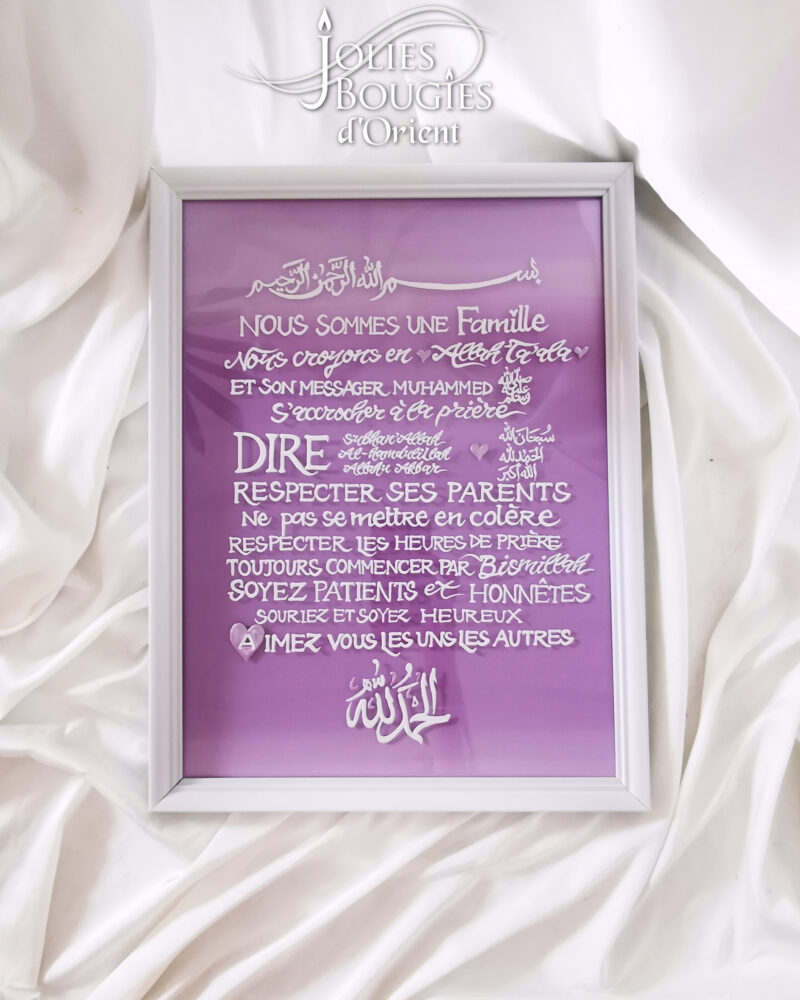 Jolies
Bougies
d'Orient
بسم الله الرحمن الرحيم
NOUS SOMMES UNE Famille
Nous croyons en Allah Ta'ala
ET SON MESSAGER MUHAMMED ﷺ
S'accrocher à la prière
DIRE
Subhan'Allah
Al-hamdulillah
Allahu Akbar
سُبْحَانَ الله
الحمد لله
الله أكبر
RESPECTER SES PARENTS
Ne pas se mettre en colère
RESPECTER LES HEURES DE PRIÈRE
TOUJOURS COMMENCER PAR Bismillah
SOYEZ PATIENTS et HONNÊTES
SOURIEZ ET SOYEZ HEUREUX
AIMEZ VOUS LES UNS LES AUTRES
الحمد لله